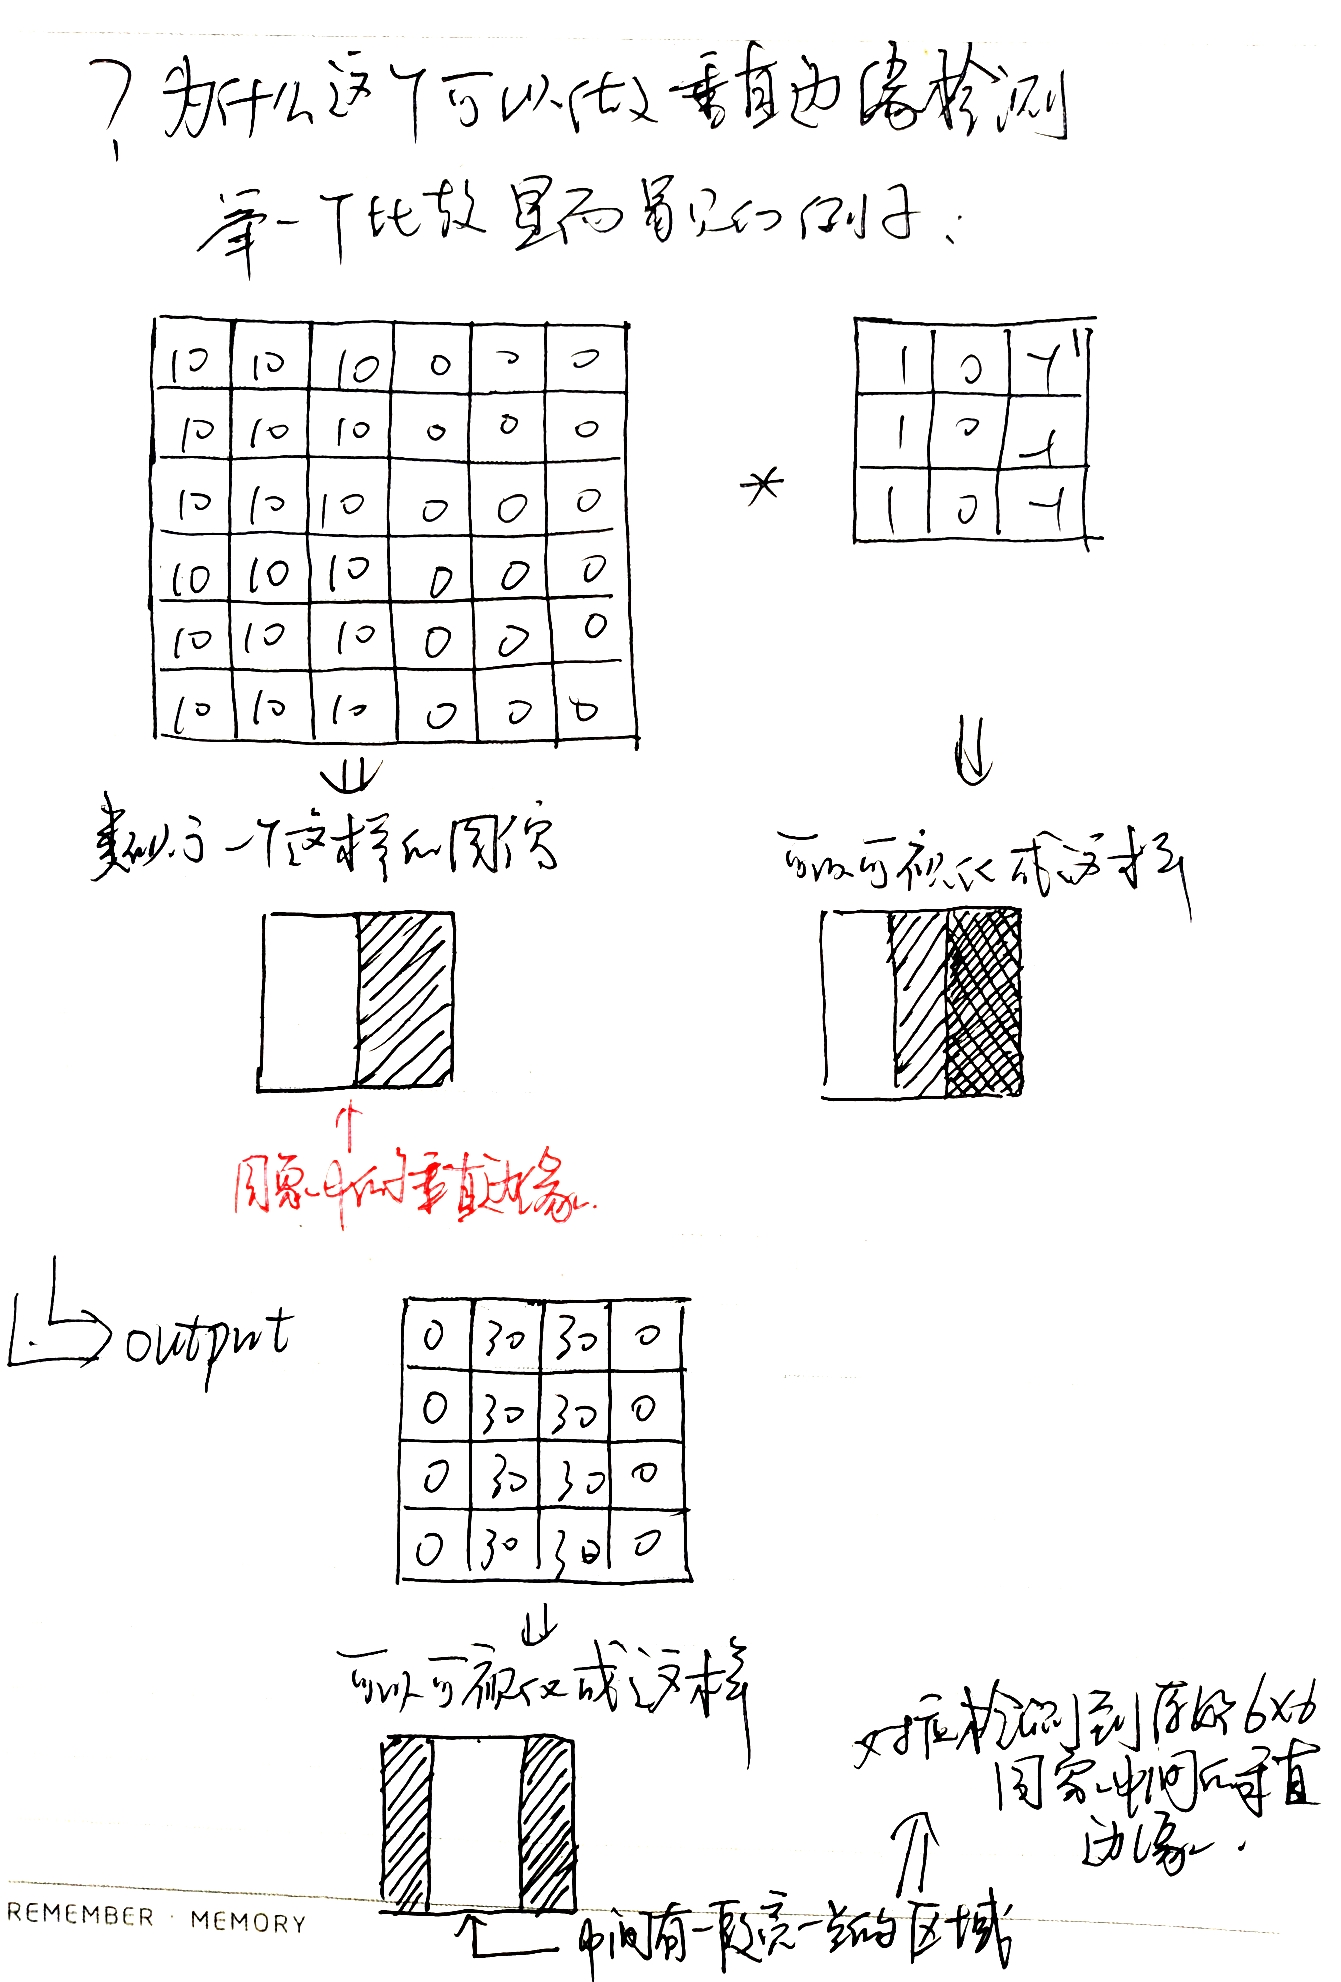 ? 为什么这个可以做垂直边缘检测
举一个比较显而易见的例子:
10 10 10 0 0 0
10 10 10 0 0 0
10 10 10 0 0 0
10 10 10 0 0 0
10 10 10 0 0 0
10 10 10 0 0 0
*
1 0 -1
1 0 -1
1 0 -1
类似于一个这样的图像
可以可视化成这样
图象中的垂直边缘.
output
0 30 30 0
0 30 30 0
0 30 30 0
0 30 30 0
可以可视化成这样
对应检测到原始6×6
图象中间的垂直
边缘.
中间有一段亮一点的区域
REMEMBER · MEMORY